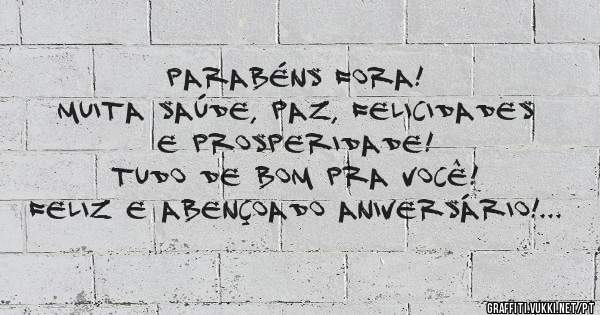 PARABÉNS FORA!
MUITA SAÚDE, PAZ, FELICIDADES
E PROSPERIDADE!
TUDO DE BOM PRA VOCÊ!
FELIZ E ABENÇOADO ANIVERSÁRIO!...
GRAFFITI.VUKKI.NET/PT